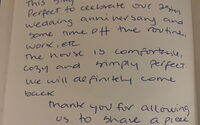 This
Perfect to celebrate our
wedding anniversary and
some time off the routine,
work, etc
The house is comfortable,
cozy and simply perfect.
We will definitely come
back
thank you for allowing
us to share a piece